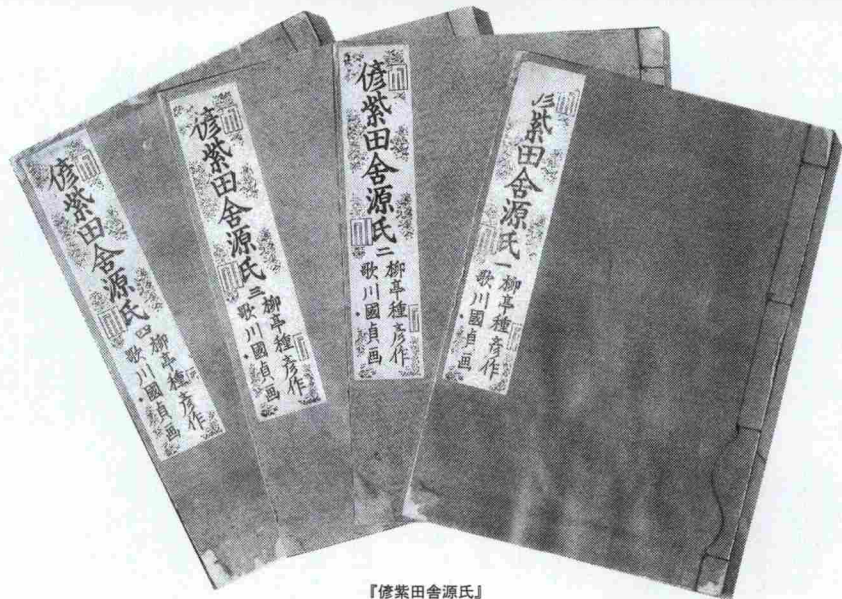 偐紫田舎源氏 四
柳亭種彦作
歌川國貞画
偐紫田舎源氏 三
柳亭種彦作
歌川國貞画
偐紫田舎源氏 二
柳亭種彦作
歌川國貞画
紫田舎源氏 一
柳亭種彦作
歌川國貞画
『偐紫田舎源氏』